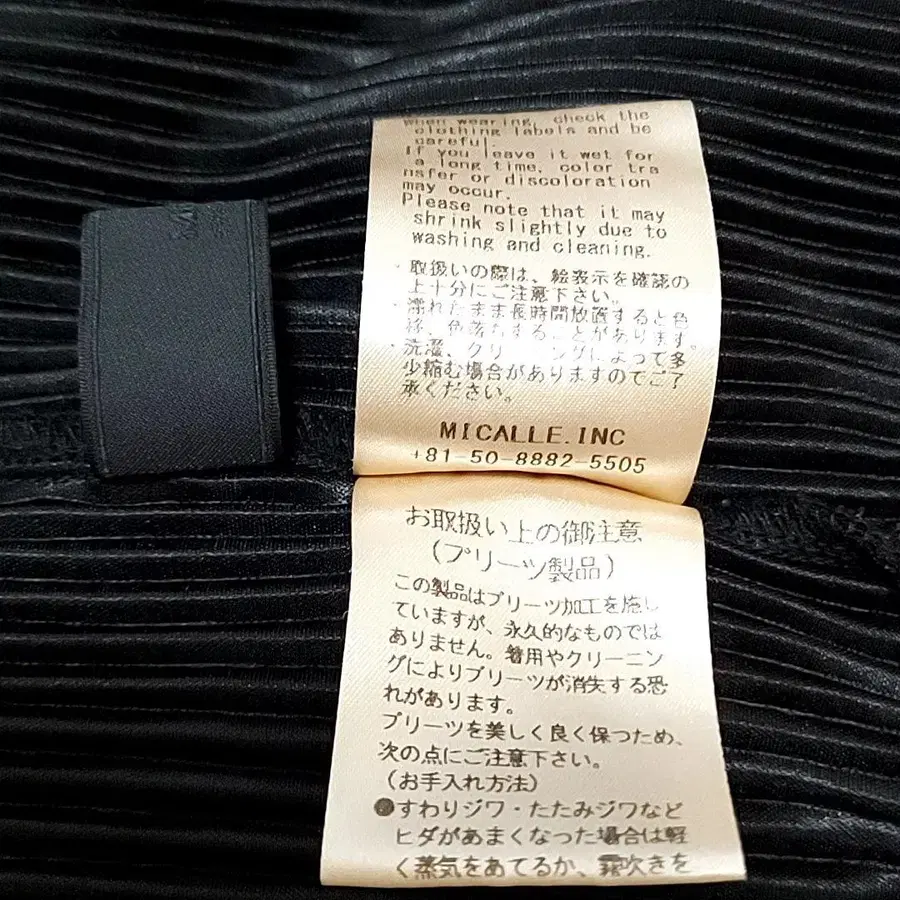 when wearing, check the
clothing labels and be
careful.
If you leave it wet for
a long time, color tra
nsfer or discoloration
may occur.
Please note that it may
shrink slightly due to
washing and cleaning.
・取扱いの際は、絵表示を確認の
上十分にご注意下さい。
・濡れたまま長時間放置すると色
移、色落ちすることがあります。
・洗濯、クリーニングによって多
少縮む場合がありますのでご了
承ください。
MICALLE.INC
+81-50-8882-5505
お取扱い上の御注意
(プリーツ製品)
この製品はプリーツ加工を施し
ていますが、永久的なものでは
ありません。着用やクリーニン
グによりプリーツが消失する恐
れがあります。
プリーツを美しく良く保つため、
次の点にご注意下さい。
(お手入れ方法)
●すわりジワ・たたみジワなど
ヒダがあまくなった場合は軽
く蒸気をあてるか、霧吹きを